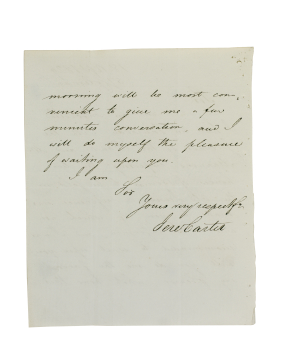 morning will be most con-
venient to give me a few
minutes conversation, and I
will do myself the pleasure
of waiting upon you.
I am
Sir
Yours very respectf.
Carter